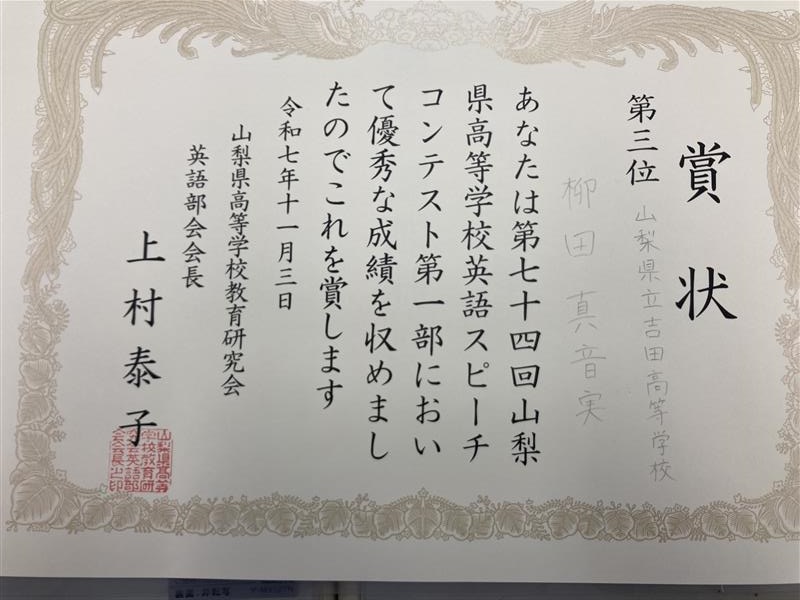 賞状
第三位 山梨県立吉田高等学校
柳田真音実
あなたは第七十四回山梨
県高等学校英語スピーチ
コンテスト第一部におい
て優秀な成績を収めまし
たのでこれを賞します
令和七年十一月三日
山梨県高等学校教育研究会
英語部会会長
上村泰子